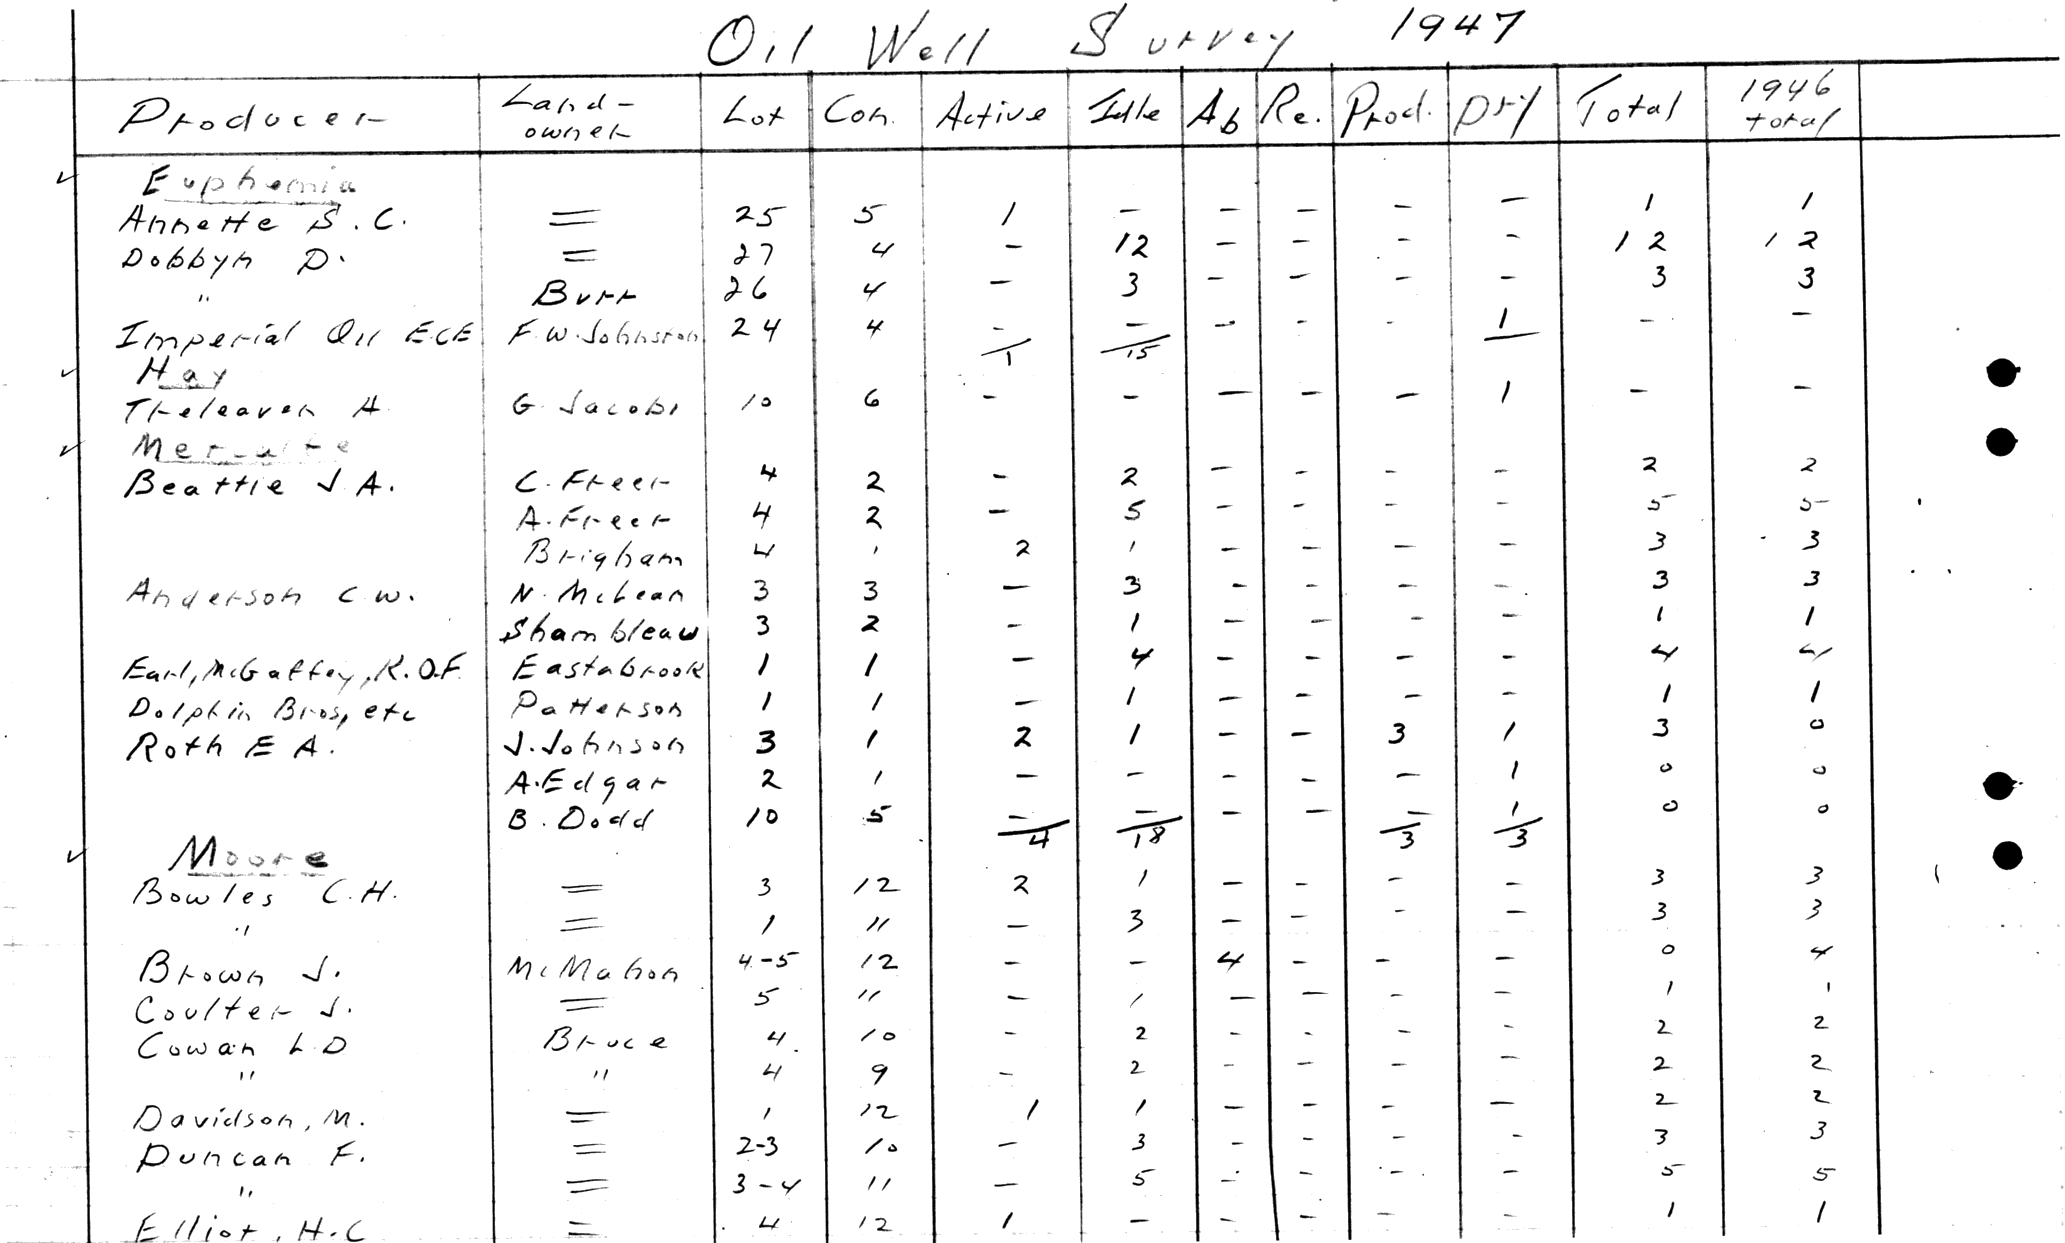 Oil Well Survey 1947
Producer Land-owner Lot Con. Active Idle Ab Re. Prod. Dry Total 1946 total
Euphemia
Annette S.C. = 25 5 1 - - - - - 1 1
Dobbyn D. = 27 4 - 12 - - - - 12 12
" Burr 26 4 - 3 - - - - 3 3
Imperial Oil ECE F.W. Johnston 24 4 - - - - - 1 - -
1 15
Hay
Treleaven A. G. Jacobs 10 6 - - - - - 1 - -
Metcalfe
Beattie J.A. C. Freer 4 2 - 2 - - - - 2 2
A. Freer 4 2 - 5 - - - - 5 5
Brigham 4 1 2 1 - - - - 3 3
Anderson C.W. N. McLean 3 3 - 3 - - - - 3 3
Shambleaw 3 2 - 1 - - - - 1 1
Earl, McGaffey, R.O.F. Eastabrook 1 1 - 4 - - - - 4 4
Dolphin Bros, etc Patterson 1 1 - 1 - - - - 1 1
Roth E A. J. Johnson 3 1 2 1 - - 3 1 3 0
A. Edgar 2 1 - - - - - 1 0 0
B. Dodd 10 5 - - - - - 1 0 0
4 18 3 3
Moore
Bowles C.H. = 3 12 2 1 - - - - 3 3
" = 1 " - 3 - - - - 3 3
Brown J. McMahon 4-5 12 - - 4 - - - 0 4
Coulter J. = 5 " - 1 - - - - 1 1
Cowan L.D Bruce 4 10 - 2 - - - - 2 2
" " 4 9 - 2 - - - - 2 2
Davidson, M. = 1 12 1 1 - - - - 2 2
Duncan F. = 2-3 10 - 3 - - - - 3 3
" = 3-4 11 - 5 - - - - 5 5
Elliot, H.C = 4 12 1 - - - - - 1 1